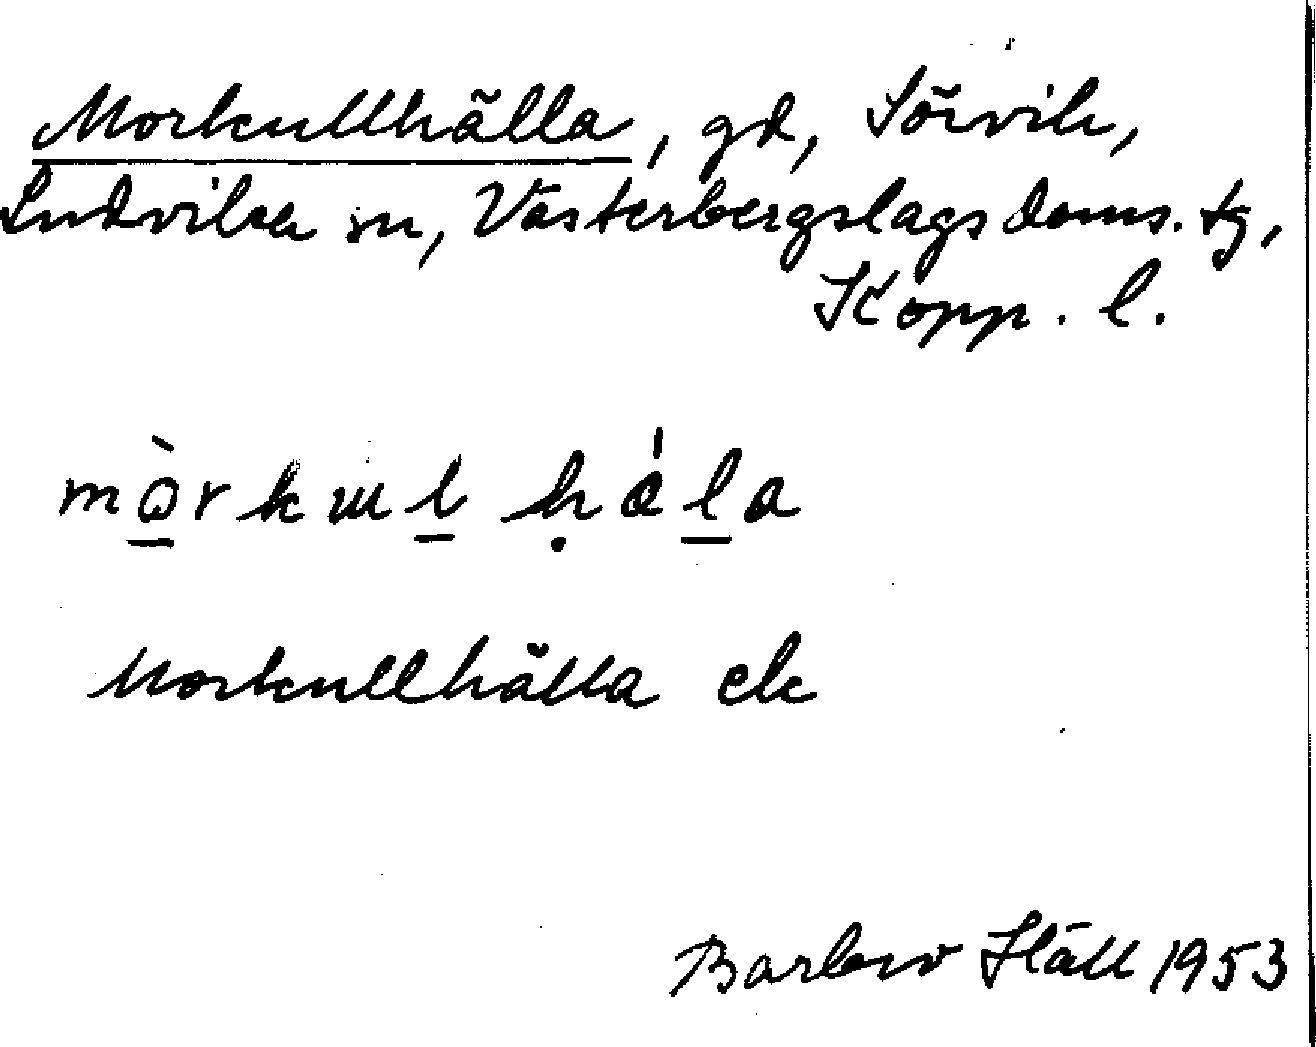 Morkullhälla, gd, Sörvik,
Ludvika sn, Västerbergslags doms. tg,
Kopp. l.
mò̱rkɯḻ ḥáḻa
Morkullhälla ek
1953